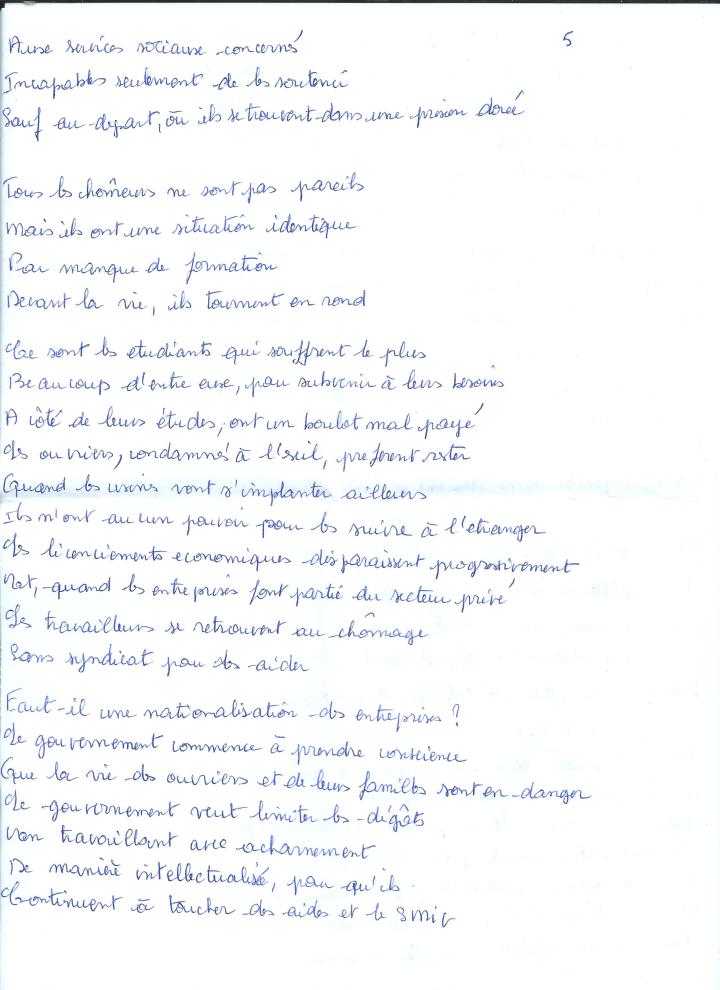 5
Aux services sociaux concernés
Incapables seulement de les soutenir
Sauf au départ, où ils se trouvent dans une prison dorée
Tous les chômeurs ne sont pas pareils
Mais ils ont une situation identique
Par manque de formation
Devant la vie, ils tournent en rond
Ce sont les etudiants qui souffrent le plus
Beaucoup d'entre eux, pour subvenir à leurs besoins
A côté de leurs études, ont un boulot mal payé
Les ouvriers, condamnés à l'exil, preferent rester
Quand les usines vont s'implanter ailleurs
Ils n'ont aucun pouvoir pour les suivre à l'etranger
Les licenciements economiques disparaissent progressivement
Net, quand les entreprises font partie du secteur privé
Les travailleurs se retrouvent au chômage
Sans syndicat pour les aider
Faut-il une nationalisation des entreprises ?
Le gouvernement commence à prendre conscience
Que la vie des ouvriers et de leurs familles sont en danger
Le gouvernement veut limiter les dégâts
en travaillant avec acharnement
De manière intellectualisé, pour qu'ils
Continuent à toucher des aides et le SMIC